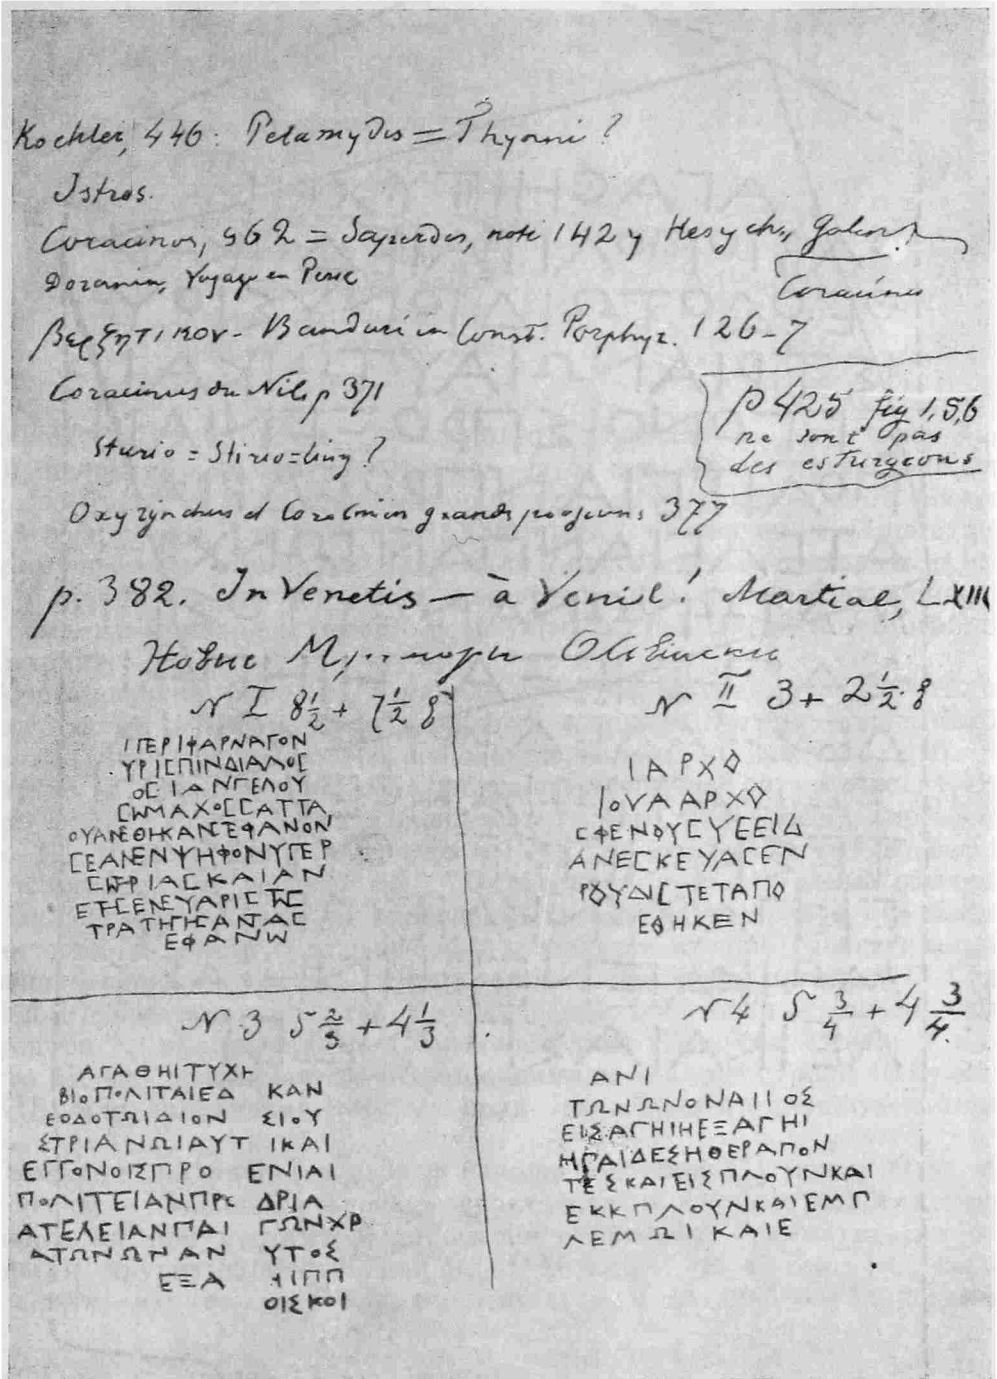 Kochler, 446: Pelamydes = Thynni?
Istros.
Coracinos, 462 = Saperdes, note 142 y Hesych., Galen!
Coracinus
Voyage en Perse
βερζητικον - Banduri in Const. Porphyr. 126-7
Coracinus du Nil p 371
p 425 fig 1, 5, 6
ne sont pas
des esturgeons
Sturio = = ?
Oxyrynchus et Coracinus grands 377
p. 382. In Venetis — à Venise! Martial, LXIII
Новые
N I 8½ + 7½ 8
ΙΠΕΡΙΦΑΡΝΑΓΟΝ
ΥΡΙCΠΙΝΔΙΑΛΟC
ΟCΙΑΝΓΕΛΟΥ
CWΜΑΧΟCCΑΤΤΑ
ΟΥΑΝΕΘΗΚΑΝCΕΦΑΝΟΝ
CΕΑΝΕΝΨΗΦΟΝΥΠΕΡ
CΩΤΡΙΑCΚΑΙΑΝ
ΤΡΑΤΗΓΗCΑΝΤΑC
ΕΦΑΝW
N II 3 + 2½ 8
ΙΑΡΧΟ
ΙΟΥΑΑΡΧΟ
CΦΕΝΟΥCΥΕΕΙΔ
ΑΝΕCΚΕΥΑCΕΝ
ΡΟΥΔΙCΤΕΤΑΠΟ
ΕΘΗΚΕΝ
N 3 5⅔ + 4⅓
ΑΓΑΘΗΙΤΥΧΗ
ΒΙΟΠΟΛΙΤΑΙΕΔ ΚΑΝ
ΕΟΔΟΤΩΙΔΙΟΝ ΣΙΟΥ
ΣΤΡΙΑΝΩΙΑΥΤ ΙΚΑΙ
ΕΓΓΟΝΟΙΣΠΡΟ ΕΝΙΑΙ
ΠΟΛΙΤΕΙΑΝΠΡΟ ΔΡΙΑ
ΑΤΕΛΕΙΑΝΠΑΙ ΓΩΝΧΡ
ΑΤΩΝΩΝΑΝ ΥΤΟΣ
ΕΞΑ ΗΙΠΠ
ΟΙΣΚΟΙ
N 4 5¾ + 4¾
ΑΝΙ
ΤΩΝΩΝΟΝΑΙΙΟΣ
ΕΙΣΑΓΗΙΗΕΞΑΓΗΙ
ΗΠΑΙΔΕΣΗΘΕΡΑΠΟΝ
ΤΕΣΚΑΙΕΙΣΠΛΟΥΝΚΑΙ
ΕΚΚΠΛΟΥΝΚΑΙΕΜΠ
ΛΕΜΩΙΚΑΙΕ